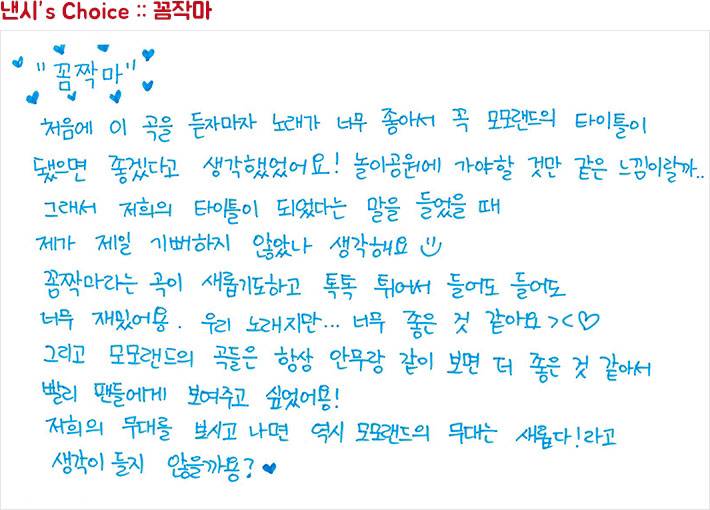 낸시's Choice :: 꼼작마
"꼼짝마"
처음에 이 곡을 듣자마자 노래가 너무 좋아서 꼭 모모랜드의 타이틀이
됐으면 좋겠다고 생각했었어요! 놀이공원에 가야할 것만 같은 느낌이랄까..
그래서 저희의 타이틀이 되었다는 말을 들었을 때
제가 제일 기뻐하지 않았나 생각해요
꼼짝마라는 곡이 새롭기도하고 톡톡 튀어서 들어도 들어도
너무 재밌어용. 우리 노래지만... 너무 좋은 것 같아요 ><♡
그리고 모모랜드의 곡들은 항상 안무랑 같이 보면 더 좋은 것 같아서
빨리 팬들에게 보여주고 싶었어용!
저희의 무대를 보시고 나면 역시 모모랜드의 무대는 새롭다!라고
생각이 들지 않을까용? ♥